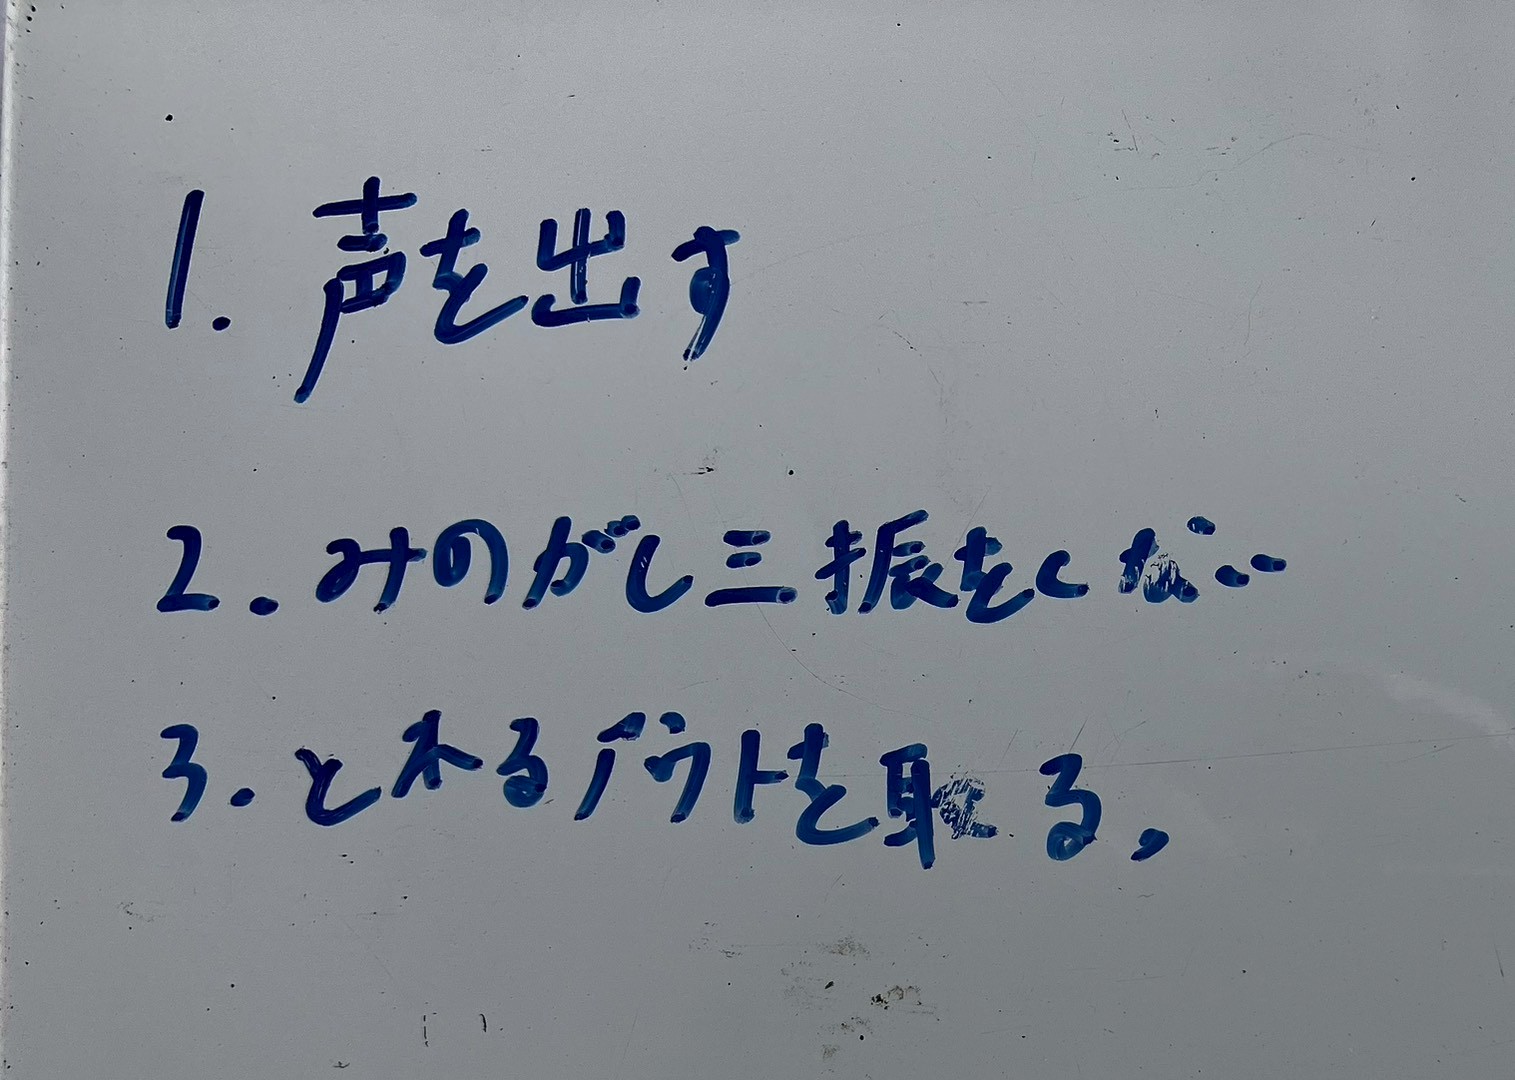 1. 声を出す
2. みのがし三振をしない
3. とれるアウトを取る,